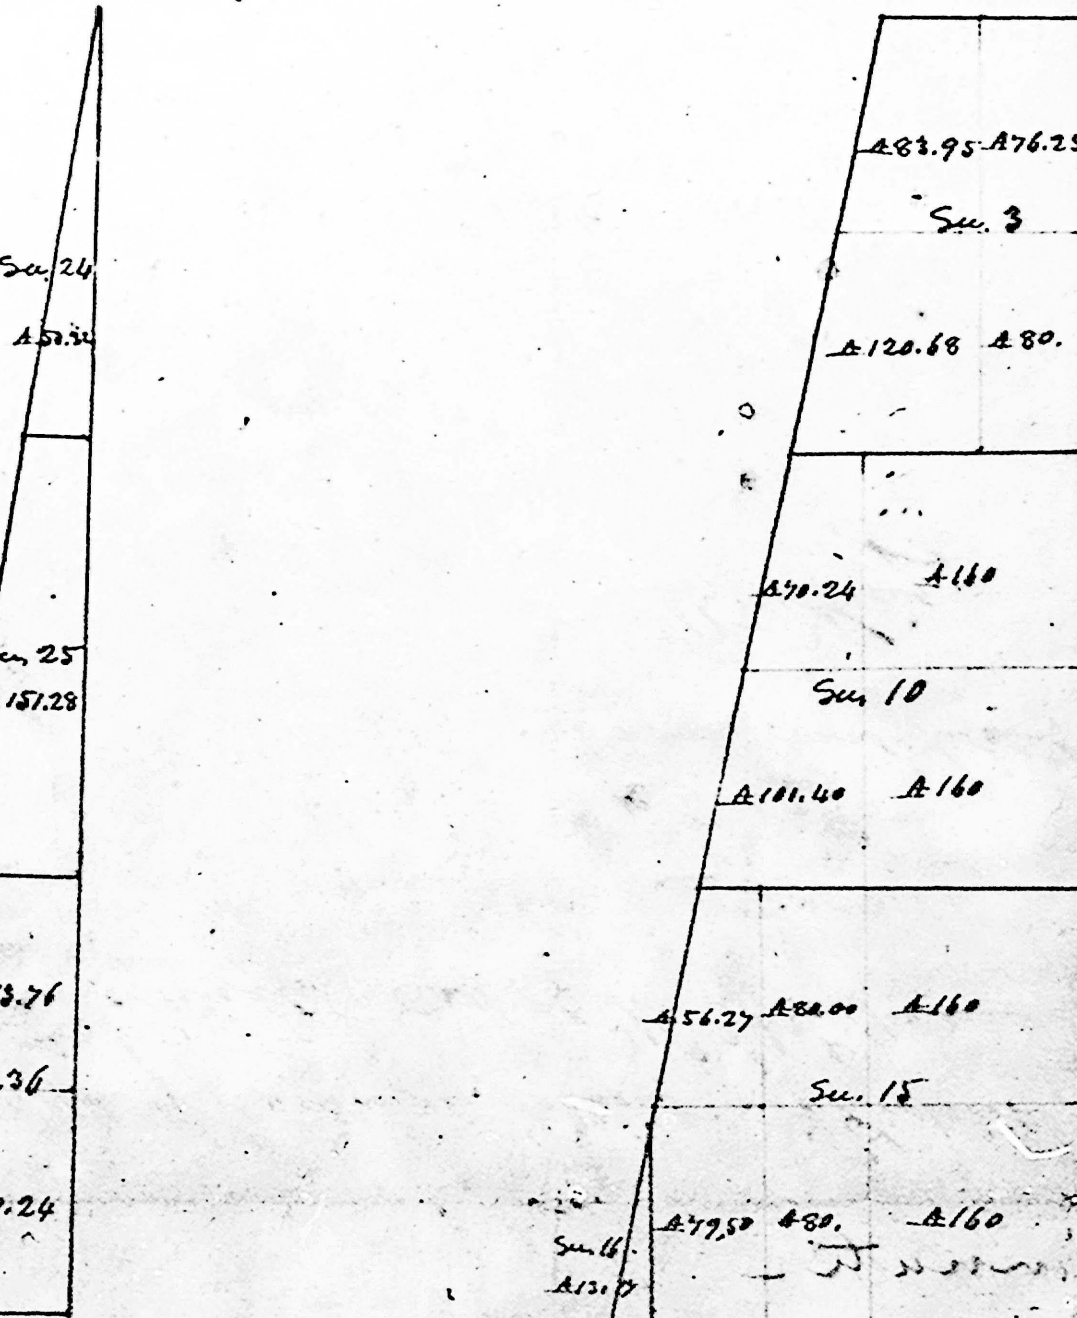 Sec. 24
Sec. 25
151.28
3.76
.36
.24
A 83.95 A 76.25
Sec. 3
A 120.68 A 80.
A 70.24 A 160
Sec. 10
A 101.40 A 160
A 56.27 A 80.00 A 160
Sec. 15
A 79.50 A 80. A 160
Sec. 16